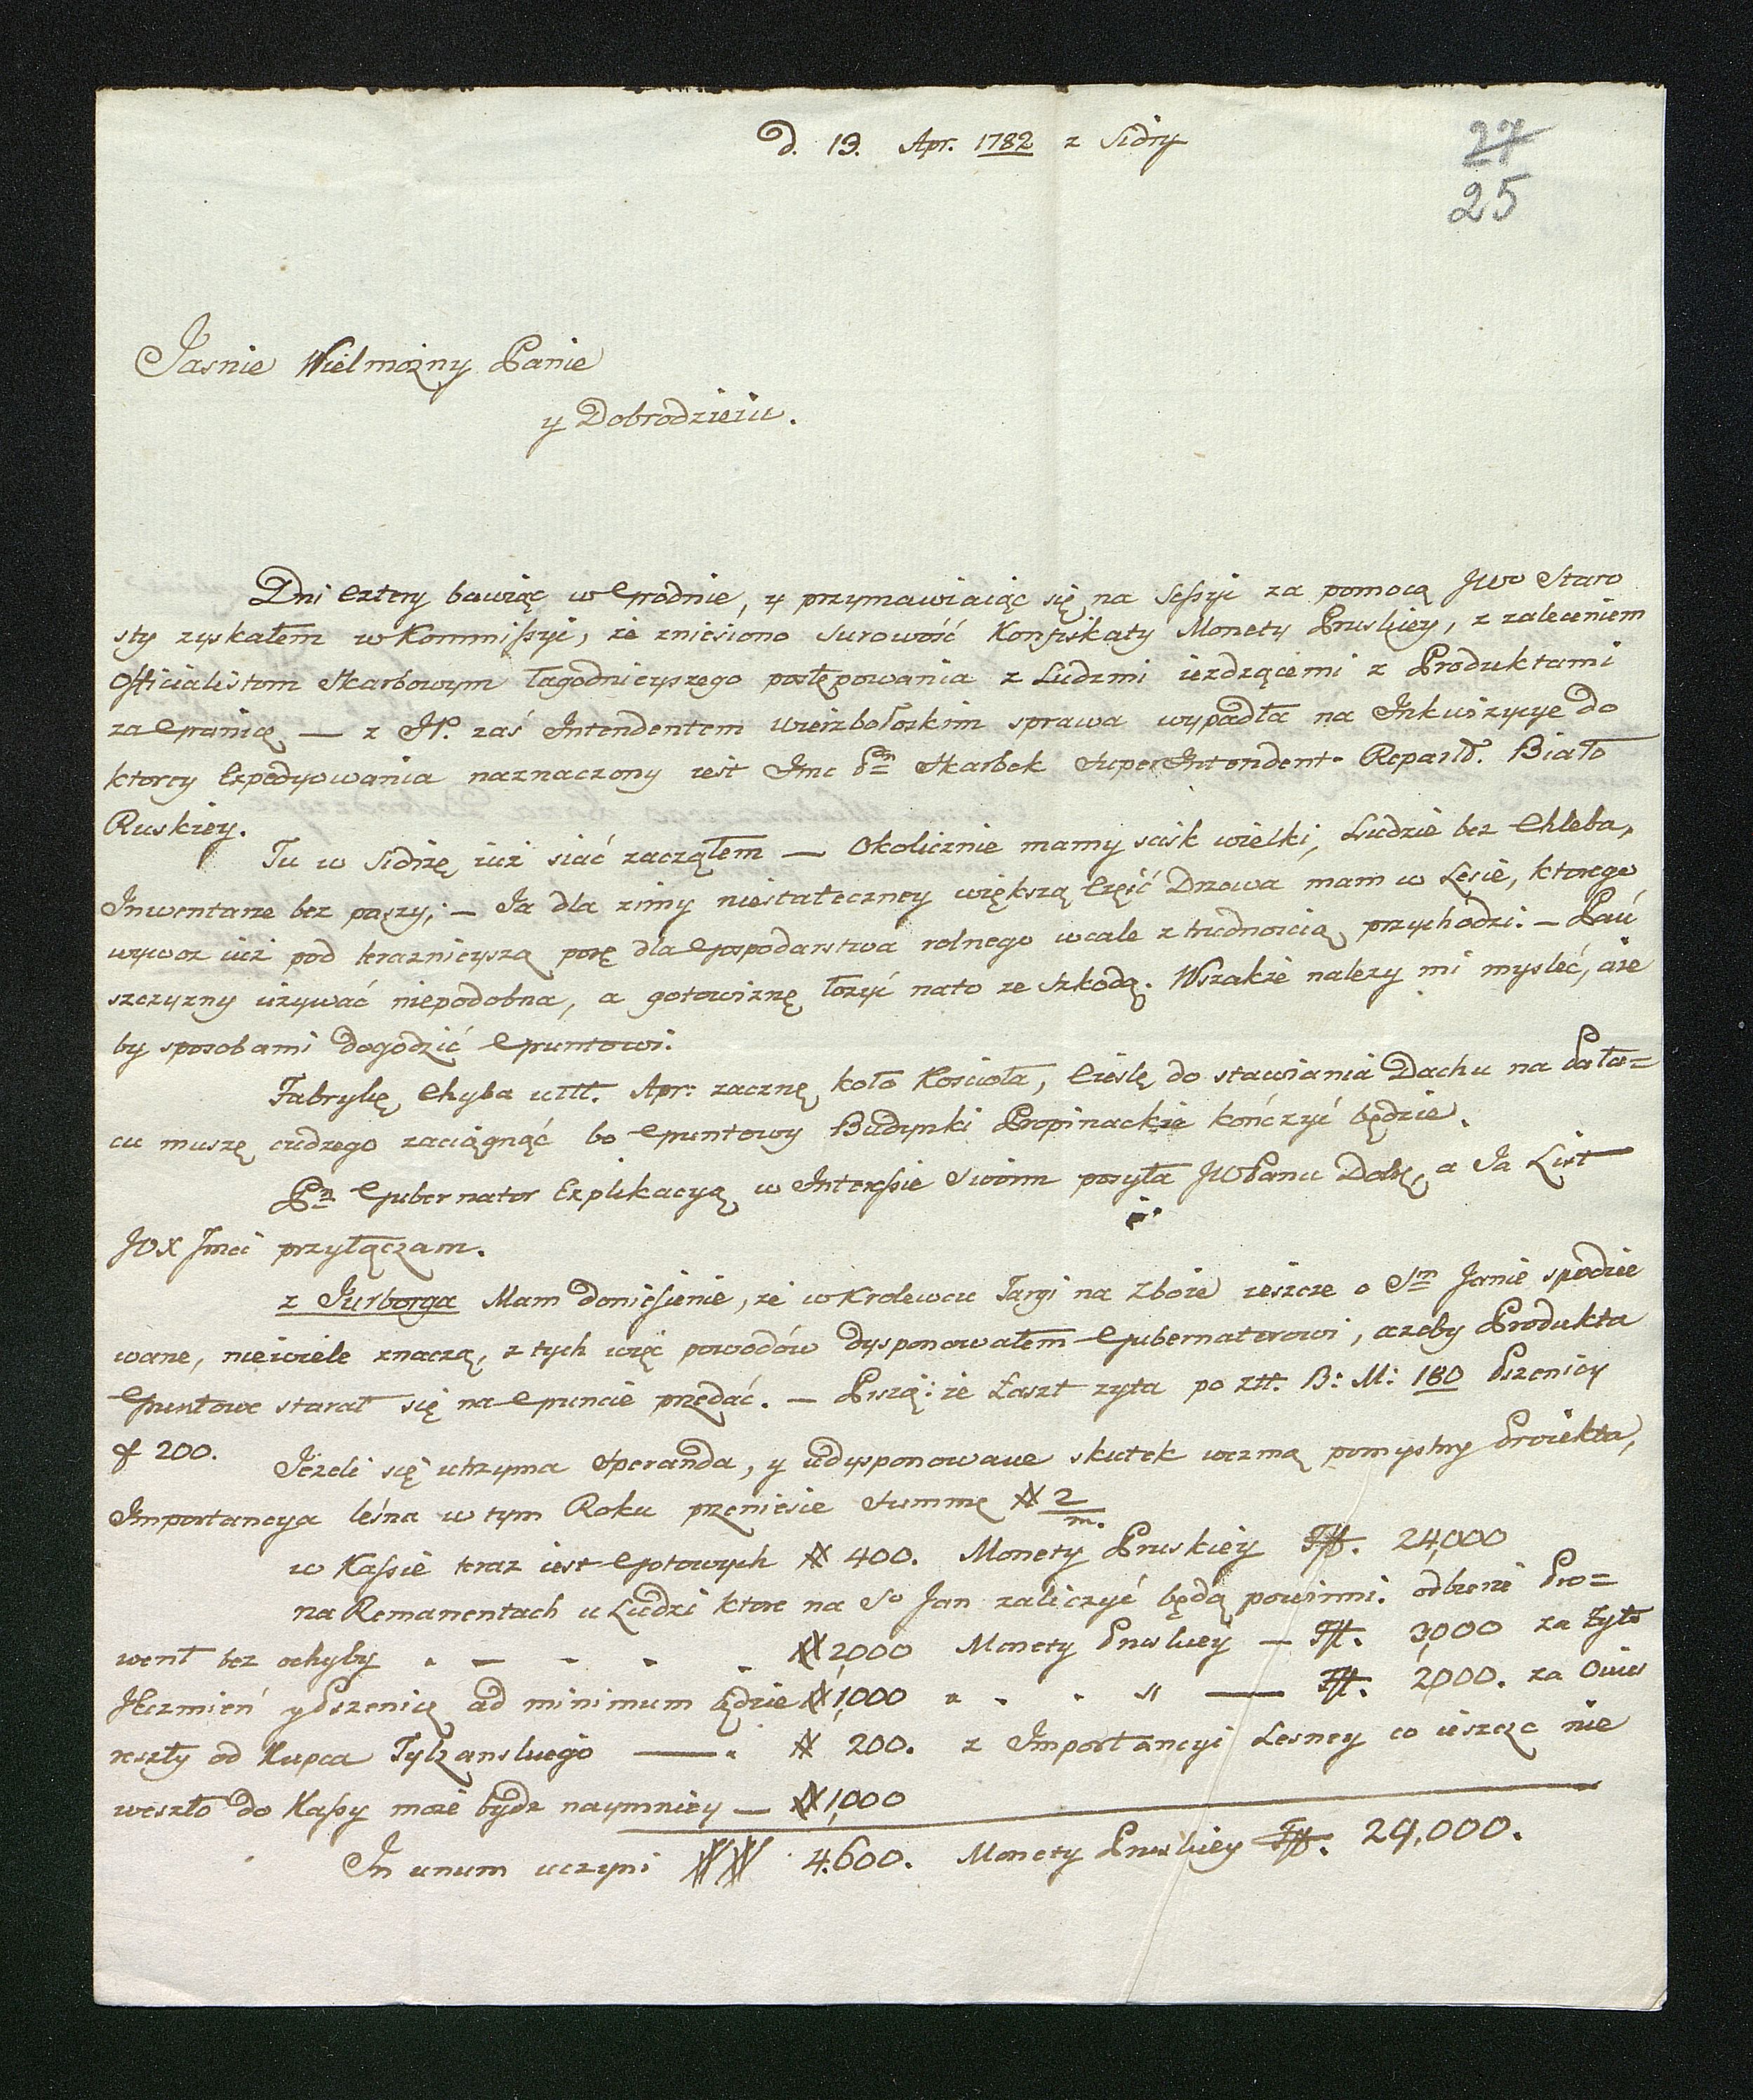 D. 13. Apr. 1782 z Sidry
27
25
Jasnie Wielmożny Panie
y Dobrodzieiu.
Dni Cztery bawiąc w Grodnie, y przymawiaiąc się na Sessyi za pomocą JWo Staro
sty zyskałem w Kommissyi, że zniesiono Surowość Konfiskaty Monety Pruskiey, z zaleceniem
Officialistom Skarbowym łagodnieyszego postępowania z Ludzmi iezdzącemi z Produktami
za Granicę — z JP. zaś Intendentem Wieizbołoskim sprawa wypadła na Inkwizycye do
ktorey Expedyowania naznaczony iest Imc Pan Skarbek SuperIntendent Repartd. Biało
Ruskiey.
Tu w Sidrze iuż siać zacząłem — Okolicznie mamy scisk wielki, Ludzie bez Chleba,
Inwentarze bez paszy; — Ja dla zimy niestateczney większą Część Drzewa mam w Lesie, ktorego
wywoz iuż pod teraznieyszą porę dla Gospodarstwa rolnego wcale z trudnoscią przychodzi. — Pań
szczyzny używać niepodobna, a gotowiznę łożyć nato ze szkodą. Wszakże nalezy mi mysleć, aże
by sposobami dogodzić Gruntowi.
Fabrykę Chyba ultt. Apr: zacznę koło Koscioła, Cieslę do stawiania Dachu na Pała=
cu muszę cudzego zaciągnąć bo Gruntowy Budynki Propinackie kończyć będzie.
Pn Gubernator Explikacyą w Interssie Swoim posyła JWPanu Dobr, a Ja List
JOX Jmci przyłączam.
z Jurborga Mam doniesienie, że w Krolewcu Targi na Zboże ieszcze o Sm Janie spodzie
wane, niewiele znaczą, z tych więc powodów dysponowałem Gubernatorowi, azeby Produkta
Gruntowe starał się na Gruncie przedać. — Piszą: że Łaszt zyta po ztt. B: M: 180 Pszenicy
f 200.
Jeżeli się utrzyma Speranda, y udysponowane skutek wezmą pomyslny Proiekta,
Importancya leśna w tym Roku przeniesie Summę # 2/m.
w Kassie teraz iest Gotowych # 400. Monety Pruskiey Tff. 24,000
na Remanentach u Ludzi ktore na So Jan zaliczyć będą powinni. odbierze Pro=
went bez ochyby - - - - # 2,000 Monety Pruskiey — Tff. 3,000 za Zyto
Jęczmień y Pszenicę ad minimum będzie # 1,000 " - - " — Tff. 2,000. za Owies
reszty od Kupca Tylzanskiego — # 200. z Importancyi Lesney co ieszcze nie
weszło do Kassy może bydz naymniey — # 1,000
In unum uczyni ## 4.600. Monety Pruskiey Tff. 29,000.